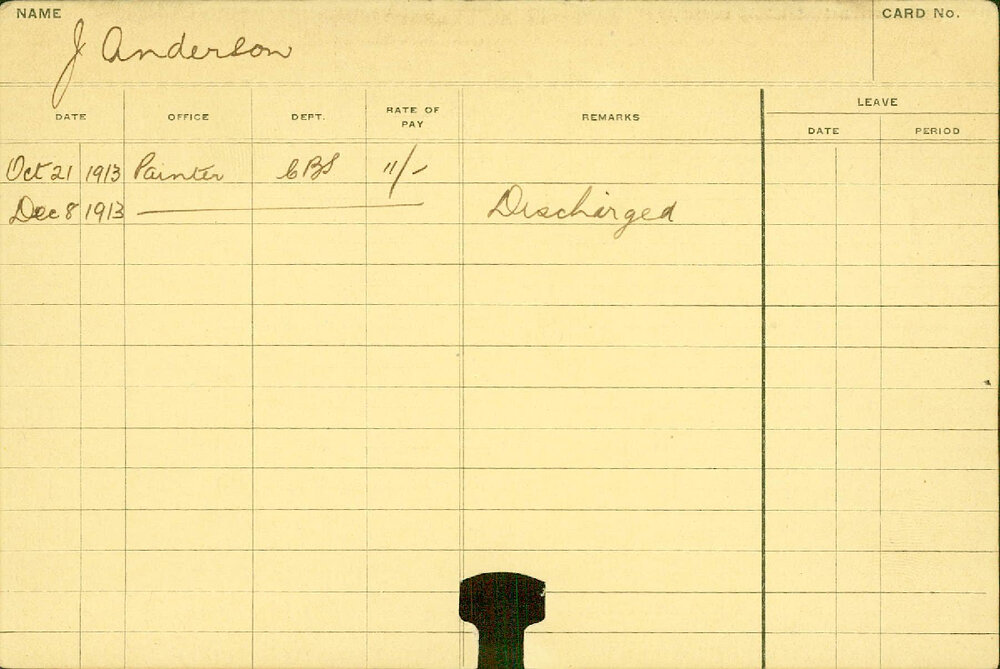 NAME
CARD No.
J Anderson
DATE OFFICE DEPT. RATE OF PAY REMARKS LEAVE
DATE PERIOD
Oct 21 1913 Painter CBS 11/-
Dec 8 1913 Discharged